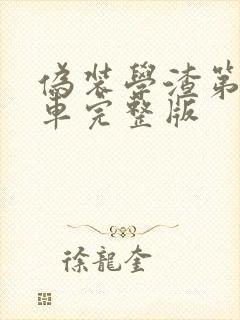 偽装學渣第
車完整版
徐龍奎